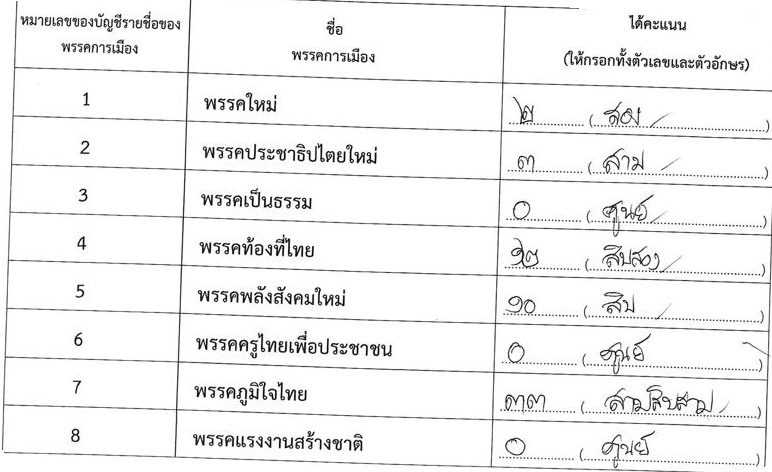 หมายเลขของบัญชีรายชื่อของพรรคการเมือง ชื่อพรรคการเมือง ได้คะแนน (ให้กรอกทั้งตัวเลขและตัวอักษร)
1 พรรคใหม่ ๒ (สอง)
2 พรรคประชาธิปไตยใหม่ ๓ (สาม)
3 พรรคเป็นธรรม ๐ (ศูนย์)
4 พรรคท้องที่ไทย ๑๒ (สิบสอง)
5 พรรคพลังสังคมใหม่ ๑๐ (สิบ)
6 พรรคครูไทยเพื่อประชาชน ๐ (ศูนย์)
7 พรรคภูมิใจไทย ๓๓ (สามสิบสาม)
8 พรรคแรงงานสร้างชาติ ๐ (ศูนย์)